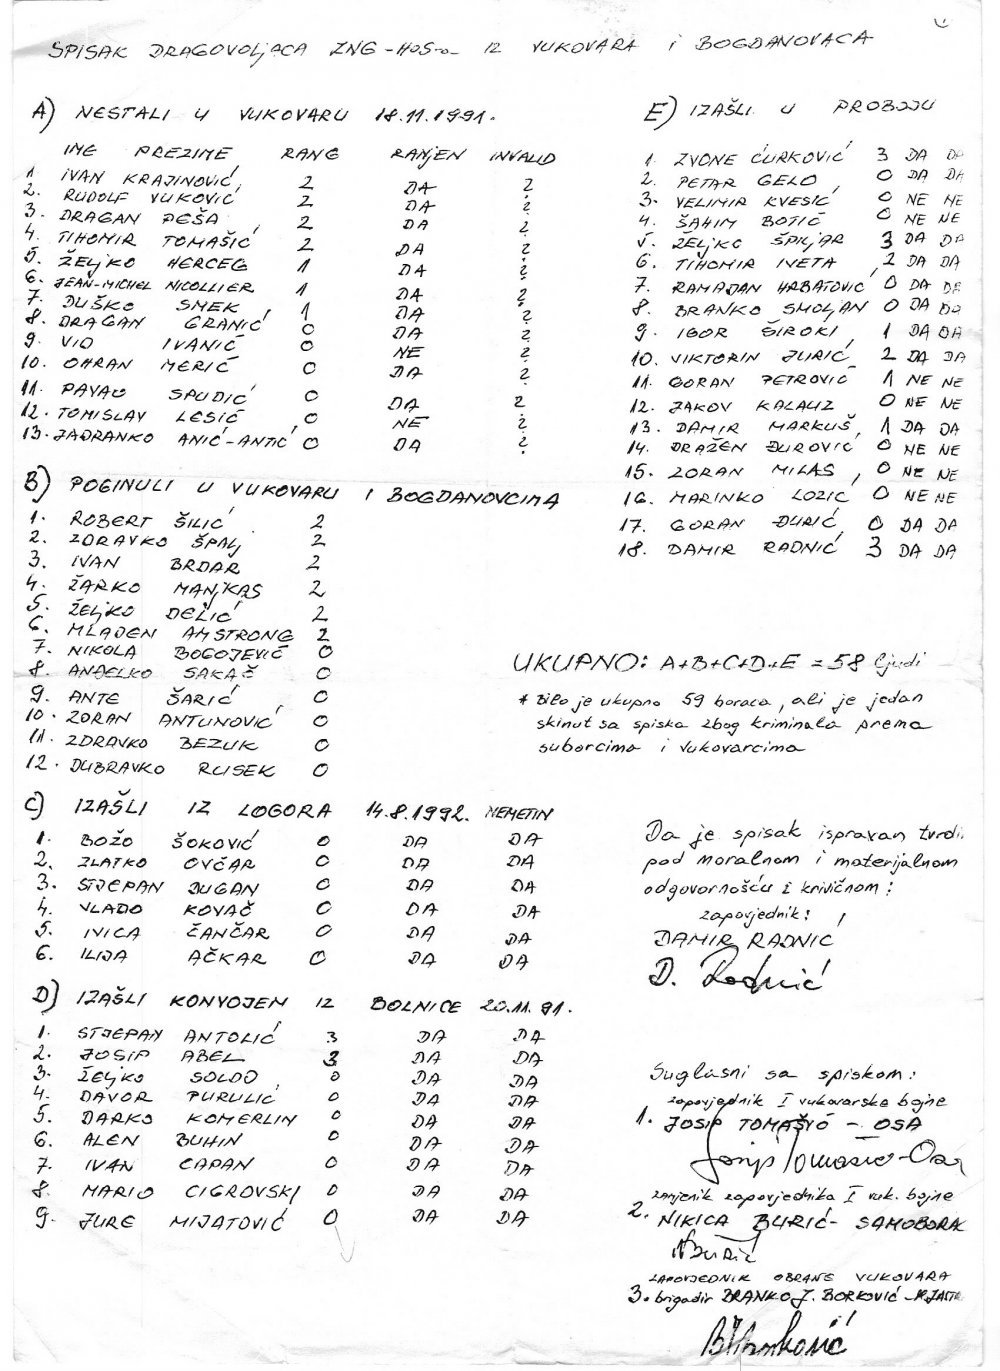 SPISAK DRAGOVOLJACA ZNG-HOS-a IZ VUKOVARA i BOGDANOVACA
A) NESTALI U VUKOVARU 18.11.1991.
IME PREZIME RANG RANJEN INVALID
1. IVAN KRAJINOVIĆ, 2 DA ?
2. RUDOLF VUKOVIĆ 2 DA ?
3. DRAGAN PEŠA 2 DA ?
4. TIHOMIR TOMAŠIĆ 2 DA ?
5. ŽELJKO HERCEG 1 DA ?
6. JEAN-MICHEL NICOLLIER 1 DA ?
7. DUŠKO SMEK 1 DA ?
8. DRAGAN GRANIĆ 0 DA ?
9. VID IVANIĆ 0 NE ?
10. OHRAN MERIĆ 0 DA ?
11. PAVAO SPUDIĆ 0 DA ?
12. TOMISLAV LESIĆ 0 NE ?
13. JADRANKO ANIĆ-ANTIĆ 0 DA ?
B) POGINULI U VUKOVARU I BOGDANOVCIMA
1. ROBERT ŠILIĆ 2
2. ZDRAVKO ŠPALJ 2
3. IVAN BRDAR 2
4. ŽARKO MANJKAS 2
5. ŽELJKO DELIĆ 2
6. MLADEN AMSTRONG 2
7. NIKOLA BOGOJEVIĆ 0
8. ANĐELKO SAKAČ 0
9. ANTE ŠARIĆ 0
10. ZORAN ANTUNOVIĆ 0
11. ZDRAVKO BEZUK 0
12. DUBRAVKO RUSEK 0
C) IZAŠLI IZ LOGORA 14.8.1992. NEMETIN
1. BOŽO ŠOKOVIĆ 0 DA DA
2. ZLATKO OVČAR 0 DA DA
3. STJEPAN DUGAN 0 DA DA
4. VLADO KOVAČ 0 DA DA
5. IVICA ČANČAR 0 DA DA
6. ILIJA AČKAR 0 DA DA
D) IZAŠLI KONVOJEM IZ BOLNICE 20.11.91.
1. STJEPAN ANTOLIĆ 3 DA DA
2. JOSIP ABEL 3 DA DA
3. ŽELJKO SOLDO 0 DA DA
4. DAVOR PURULIĆ 0 DA DA
5. DARKO KOMERLIN 0 DA DA
6. ALEN BUHIN 0 DA DA
7. IVAN CAPAN 0 DA DA
8. MARIO CIGROVSKI 0 DA DA
9. JURE MIJATOVIĆ 0 DA DA
E) IZAŠLI U PROBOJU
1. ZVONE ĆURKOVIĆ 3 DA DA
2. PETAR GELO, 0 DA DA
3. VELIMIR KVESIĆ 0 NE NE
4. ŠAHIM BOTIĆ 0 NE NE
5. ŽELJKO ŠPILJAR 3 DA DA
6. TIHOMIR IVETA 2 DA DA
7. RAMADAN HRBATOVIĆ 0 DA DA
8. BRANKO SMOLJAN 0 DA DA
9. IGOR ŠIROKI 1 DA DA
10. VIKTORIN JURIĆ 2 DA DA
11. GORAN PETROVIĆ 1 NE NE
12. JAKOV KALAUZ 0 NE NE
13. DAMIR MARKUŠ 1 DA DA
14. DRAŽEN ĐUROVIĆ 0 NE NE
15. ZORAN MILAS, 0 NE NE
16. MARINKO LOZIĆ 0 NE NE
17. GORAN ĐURIĆ 0 DA DA
18. DAMIR RADNIĆ 3 DA DA
UKUPNO: A+B+C+D+E = 58 ljudi
* Bilo je ukupno 59 boraca, ali je jedan
skinut sa spiska zbog kriminala prema
suborcima i vukovarcima
Da je spisak ispravan tvrdi
pod moralnom i materijalnom
odgovornošću i krivičnom:
zapovjednik:
DAMIR RADNIĆ
D. Radnić
Suglasni sa spiskom:
zapovjednik I vukovarske bojne
1. JOSIP TOMAŠIĆ - OSA
Josip Tomašić-Osa
zamjenik zapovjednika I vuk. bojne
2. NIKICA BURIĆ - SAMOBORA
NBurić
ZAPOVJEDNIK OBRANE VUKOVARA
3. brigadir BRANKO J. BORKOVIĆ